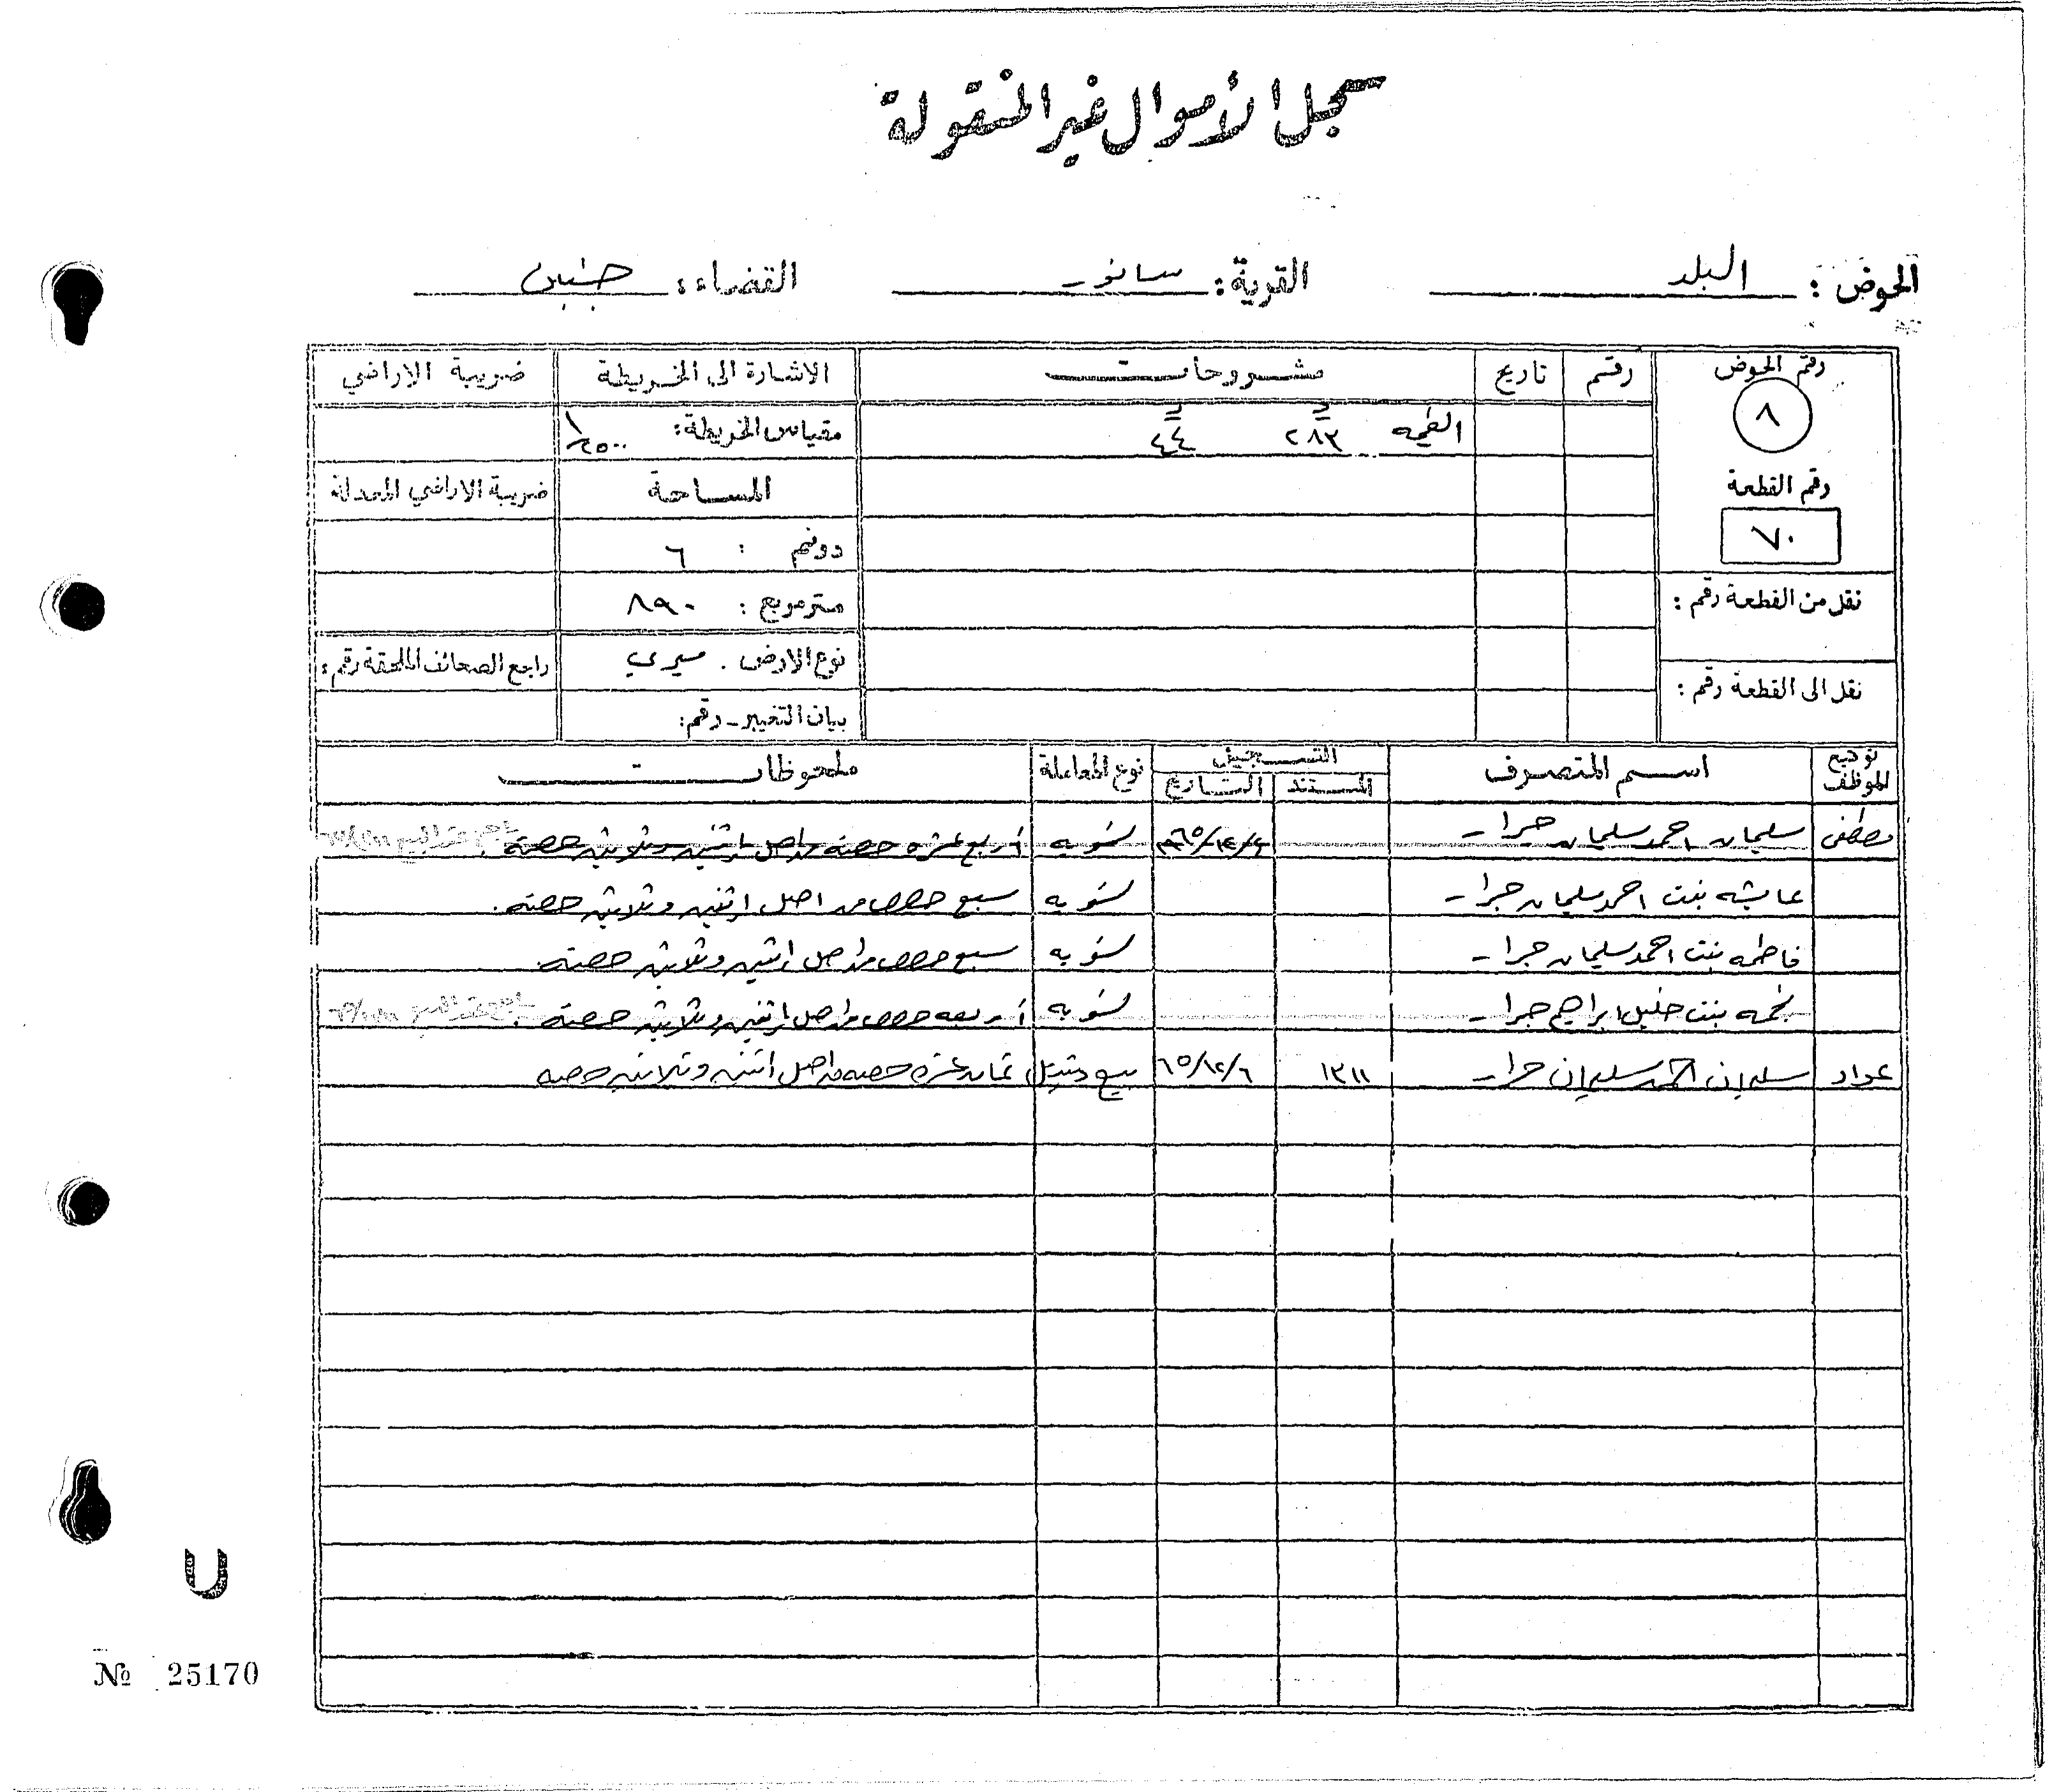 سجل الأموال غير المنقولة
الحوض : البلد القرية : سانور القضاء : جنين
رقم الحوض رقم تاريخ مشروحات الاشارة الى الخريطة ضريبة الاراضي
٨ القيمه ٢٨٣ ٤٤ مقياس الخريطة : ١/٢٥٠٠
رقم القطعة المساحة ضريبة الاراضي المعدلة
٧٠ دونم : ٦
نقل من القطعة رقم : متر مربع : ٨٩٠
نوع الارض . ميري راجع الصحائف الملحقة رقم :
نقل الى القطعة رقم : بيان التغيير - رقم :
توقيع الموظف اسم المتصرف التسجيل نوع المعاملة ملحوظات
المستند التاريخ
مصطفى سليمان احمد سليمان جرار تسويه أربع عشره حصه من اصل اثنين وثلاثين حصه .
عايشه بنت احمد سليمان جرار تسويه سبع حصص من اصل اثنين وثلاثين حصه .
فاطمه بنت احمد سليمان جرار تسويه سبع حصص من اصل اثنين وثلاثين حصه .
نجمه بنت خليل ابراهيم جرار تسويه أربعه حصص من اصل اثنين وثلاثين حصه .
عواد سليمان احمد سليمان جرار ١٣١١ ٦٥/١٢/٦ بيع وتنزيل ثمان عشره حصه من اصل اثنين وثلاثين حصه
№ 25170